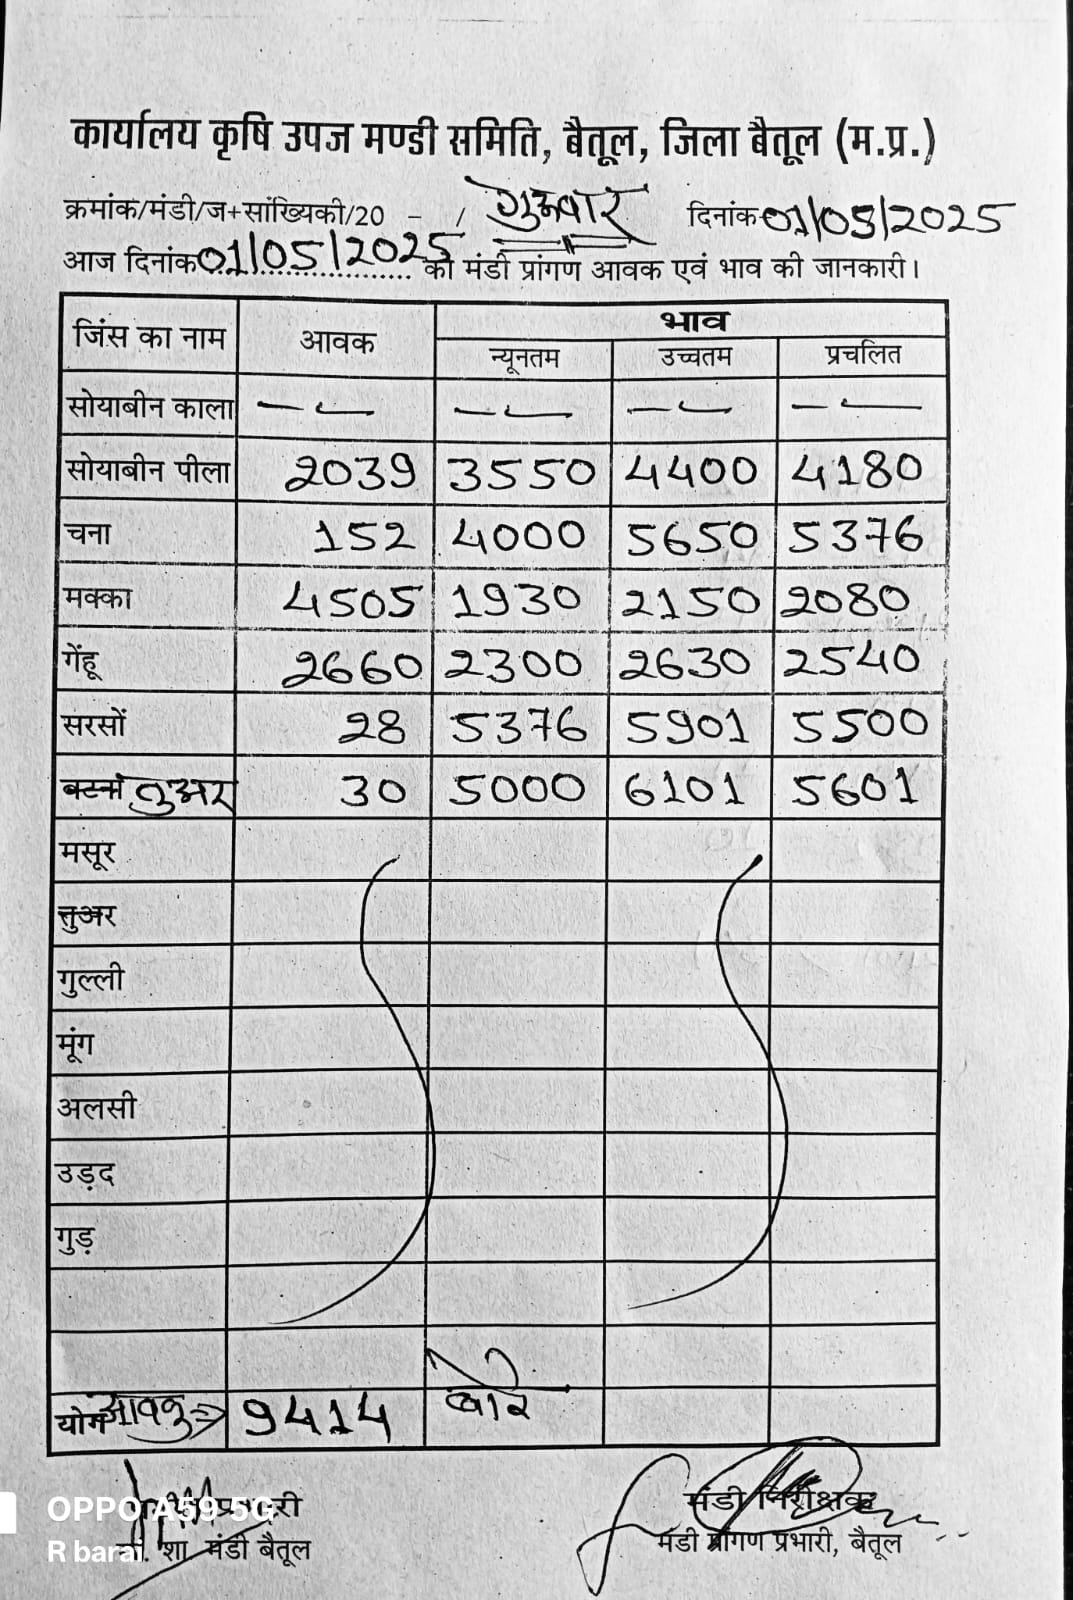 कार्यालय कृषि उपज मण्डी समिति, बैतूल, जिला बैतूल (म.प्र.)
क्रमांक/मंडी/ज+सांख्यिकी/20 - / गुरूवार दिनांक 01/05/2025
आज दिनांक 01/05/2025 को मंडी प्रांगण आवक एवं भाव की जानकारी।
जिंस का नाम आवक भाव
न्यूनतम उच्चतम प्रचलित
सोयाबीन काला
सोयाबीन पीला 2039 3550 4400 4180
चना 152 4000 5650 5376
मक्का 4505 1930 2150 2080
गेंहू 2660 2300 2630 2540
सरसों 28 5376 5901 5500
बटना तुअर 30 5000 6101 5601
मसूर
तुअर
गुल्ली
मूंग
अलसी
उड़द
गुड़
योग आवक 9414 बोरे
प्रभारी मंडी निरीक्षक
शा. मंडी बैतूल मंडी प्रांगण प्रभारी, बैतूल
OPPO A59 5G
R barai